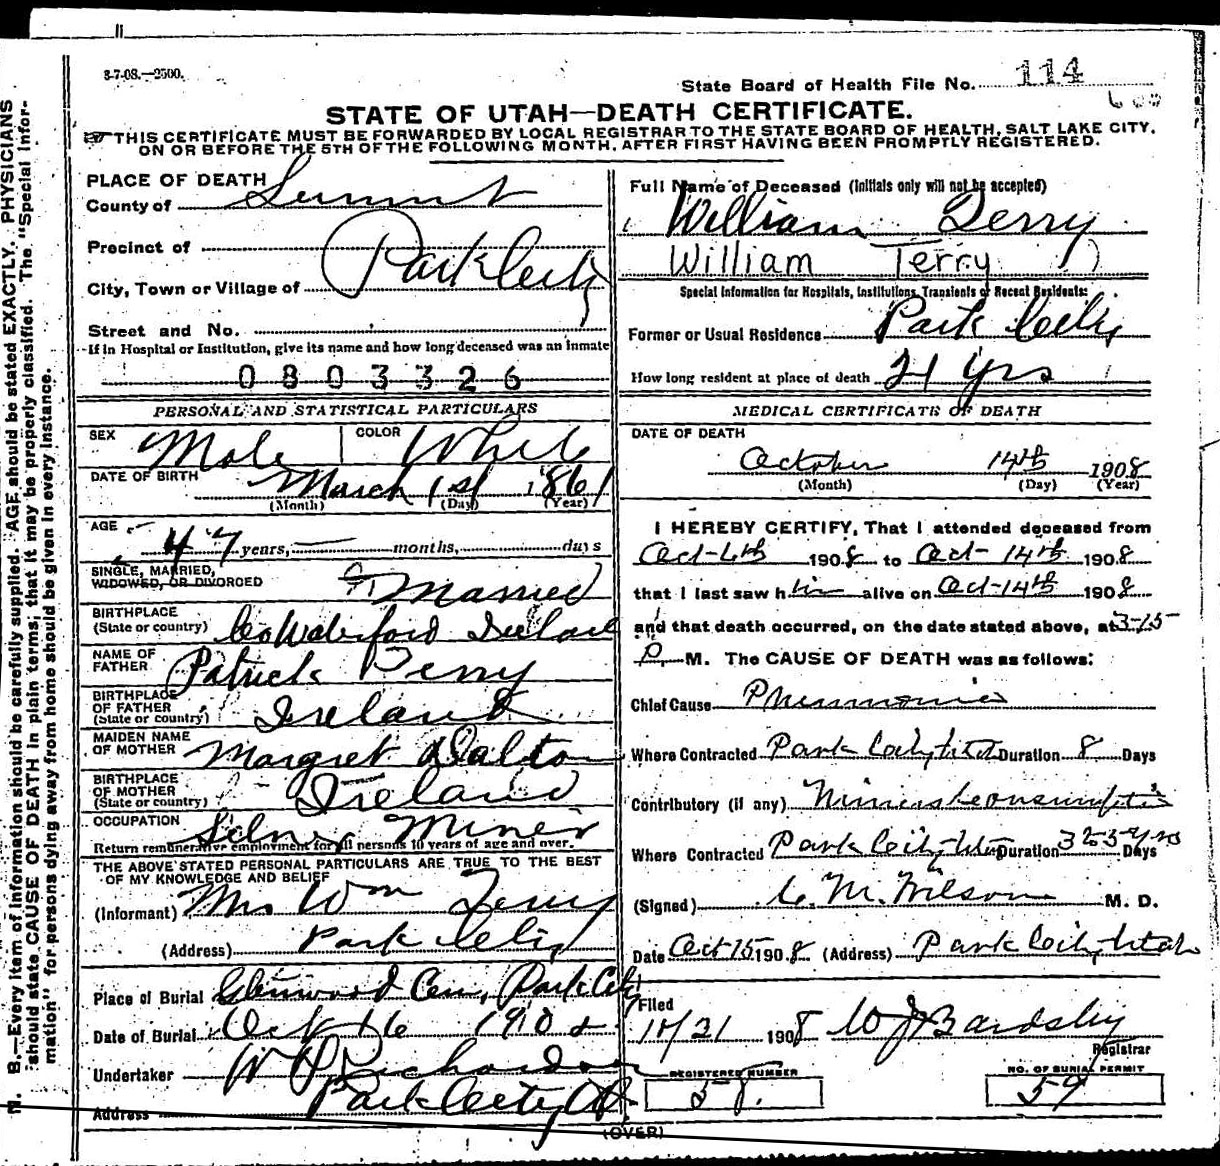 3-7-08.—2500.
State Board of Health File No. 114
STATE OF UTAH—DEATH CERTIFICATE.
THIS CERTIFICATE MUST BE FORWARDED BY LOCAL REGISTRAR TO THE STATE BOARD OF HEALTH, SALT LAKE CITY,
ON OR BEFORE THE 5TH OF THE FOLLOWING MONTH, AFTER FIRST HAVING BEEN PROMPTLY REGISTERED.
PLACE OF DEATH
County of Summit
Precinct of
City, Town or Village of Park City
Street and No.
If in Hospital or Institution, give its name and how long deceased was an inmate
0803326
PERSONAL AND STATISTICAL PARTICULARS
SEX Male COLOR White
DATE OF BIRTH March 1st 1861
(Month) (Day) (Year)
AGE 47 years, months, days
SINGLE, MARRIED,
WIDOWED, OR DIVORCED Married
BIRTHPLACE
(State or country) Co Waterford Ireland
NAME OF
FATHER Patrick Terry
BIRTHPLACE
OF FATHER
(State or country) Ireland
MAIDEN NAME
OF MOTHER Margret Dalton
BIRTHPLACE
OF MOTHER
(State or country) Ireland
OCCUPATION Silver Miner
Return remunerative employment for all persons 10 years of age and over.
THE ABOVE STATED PERSONAL PARTICULARS ARE TRUE TO THE BEST
OF MY KNOWLEDGE AND BELIEF
(Informant) Mrs Wm Terry
(Address) Park City
Place of Burial Glenwood Cem, Park City
Date of Burial Oct 16 1908
Undertaker W P Richardson
Address Park City Ut.
Full Name of Deceased (Initials only will not be accepted)
William Terry
William Terry)
Special Information for Hospitals, Institutions, Transients or Recent Residents:
Former or Usual Residence Park City
How long resident at place of death 21 yrs
MEDICAL CERTIFICATE OF DEATH
DATE OF DEATH
October 14th 1908
(Month) (Day) (Year)
I HEREBY CERTIFY, That I attended deceased from
Oct-6th 1908 to Oct-14th 1908
that I last saw him alive on Oct-14th 1908
and that death occurred, on the date stated above, at 3-15
P. M. The CAUSE OF DEATH was as follows:
Chief Cause Pneumonia
Where Contracted Park City Utah Duration 8 Days
Contributory (if any) Miners Consumption
Where Contracted Park City Utah Duration Days
(Signed) C. M. Wilson M. D.
Date Oct 15 1908 (Address) Park City Utah
Filed
10/31 1908 W J Bardsley
Registrar
REGISTERED NUMBER
58.
NO. OF BURIAL PERMIT
59
(OVER)
N. B.—Every item of information should be carefully supplied. AGE should be stated EXACTLY. PHYSICIANS
should state CAUSE OF DEATH in plain terms, that it may be properly classified. The "Special Infor-
mation" for persons dying away from home should be given in every instance.